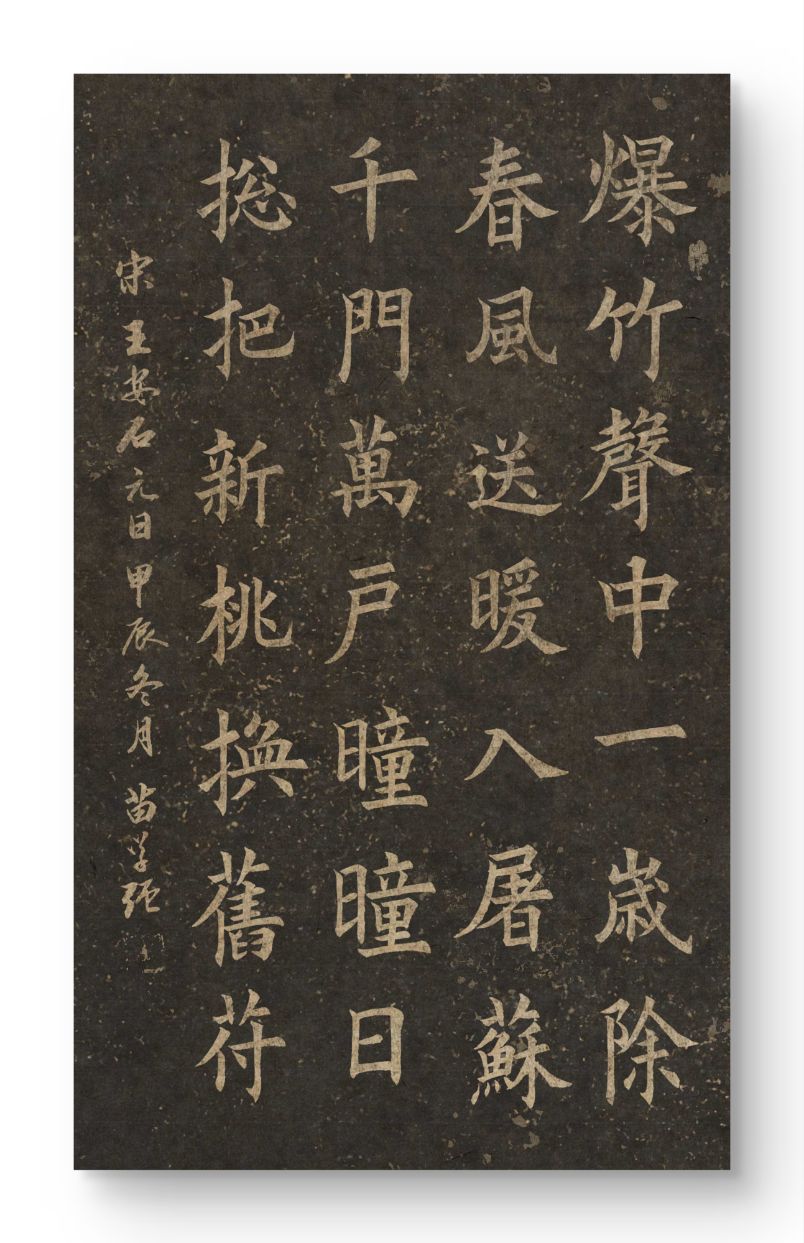 爆竹聲中一歲除
春風送暖入屠蘇
千門萬戸曈曈日
揔把新桃換舊苻
宋王安石元日甲辰冬月苗学强